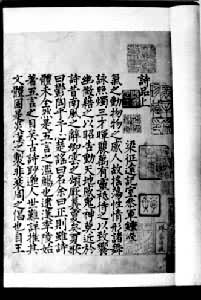 詩品上
梁征遠記室參軍鍾嶸
氣之動物物之感人故搖蕩性情形諸舞
詠照燭三才暉麗萬有靈祇待之以致饗
幽微藉之以昭告動天地感鬼神莫近於
詩昔南風之辭卿雲之頌厥義夐矣夏歌
曰鬱陶乎予心楚謠曰名余曰正則雖詩
體未全然是五言之濫觴也逮漢李陵始
著五言之目矣古詩眇邈人世難詳推其
文體固是炎漢之製非衰周之倡也自王